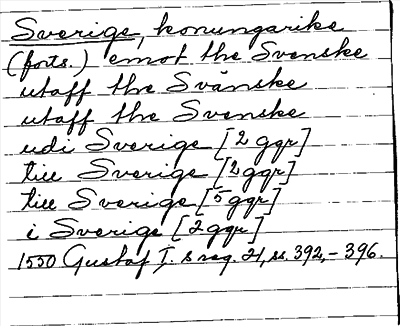 Sverige, konungarike
(forts.) emot the Svenske
utaff the Svånske
utaff the Svenske
udi Sverige [2 ggr]
till Sverige [2 ggr]
till Sverige [5 ggr]
i Sverige [2 ggr]
1550 Gustaf I:s reg. 21, ss. 392,-396.